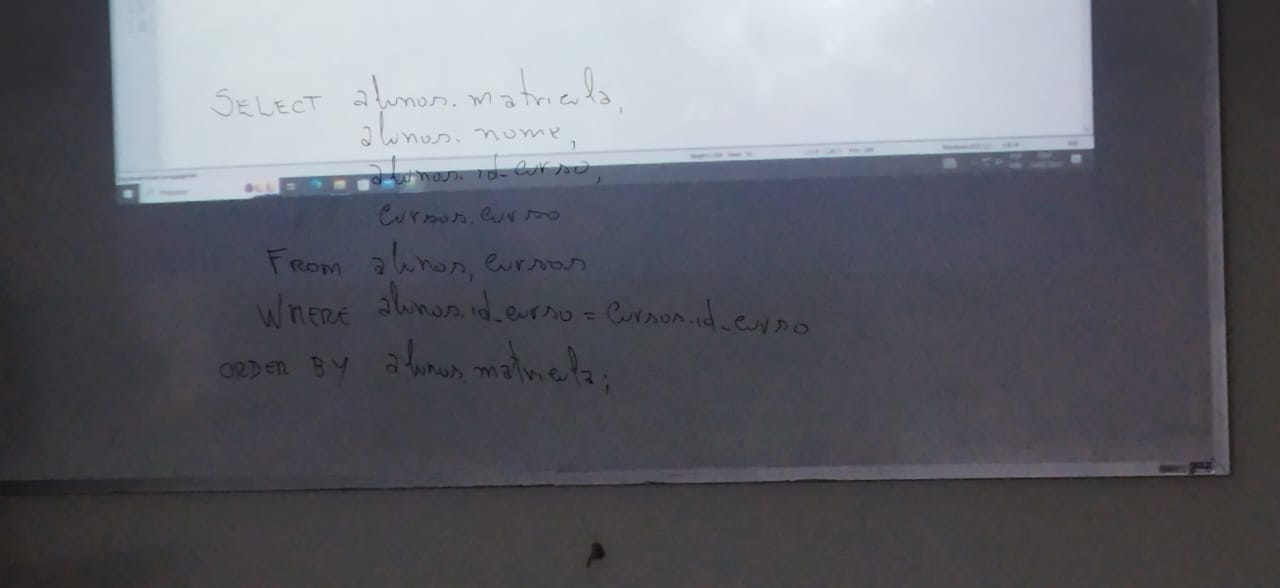 SELECT alunos.matricula,
alunos.nome,
alunos.id_curso,
cursos.curso
FROM alunos, cursos
WHERE alunos.id_curso = cursos.id_curso
ORDER BY alunos.matricula;